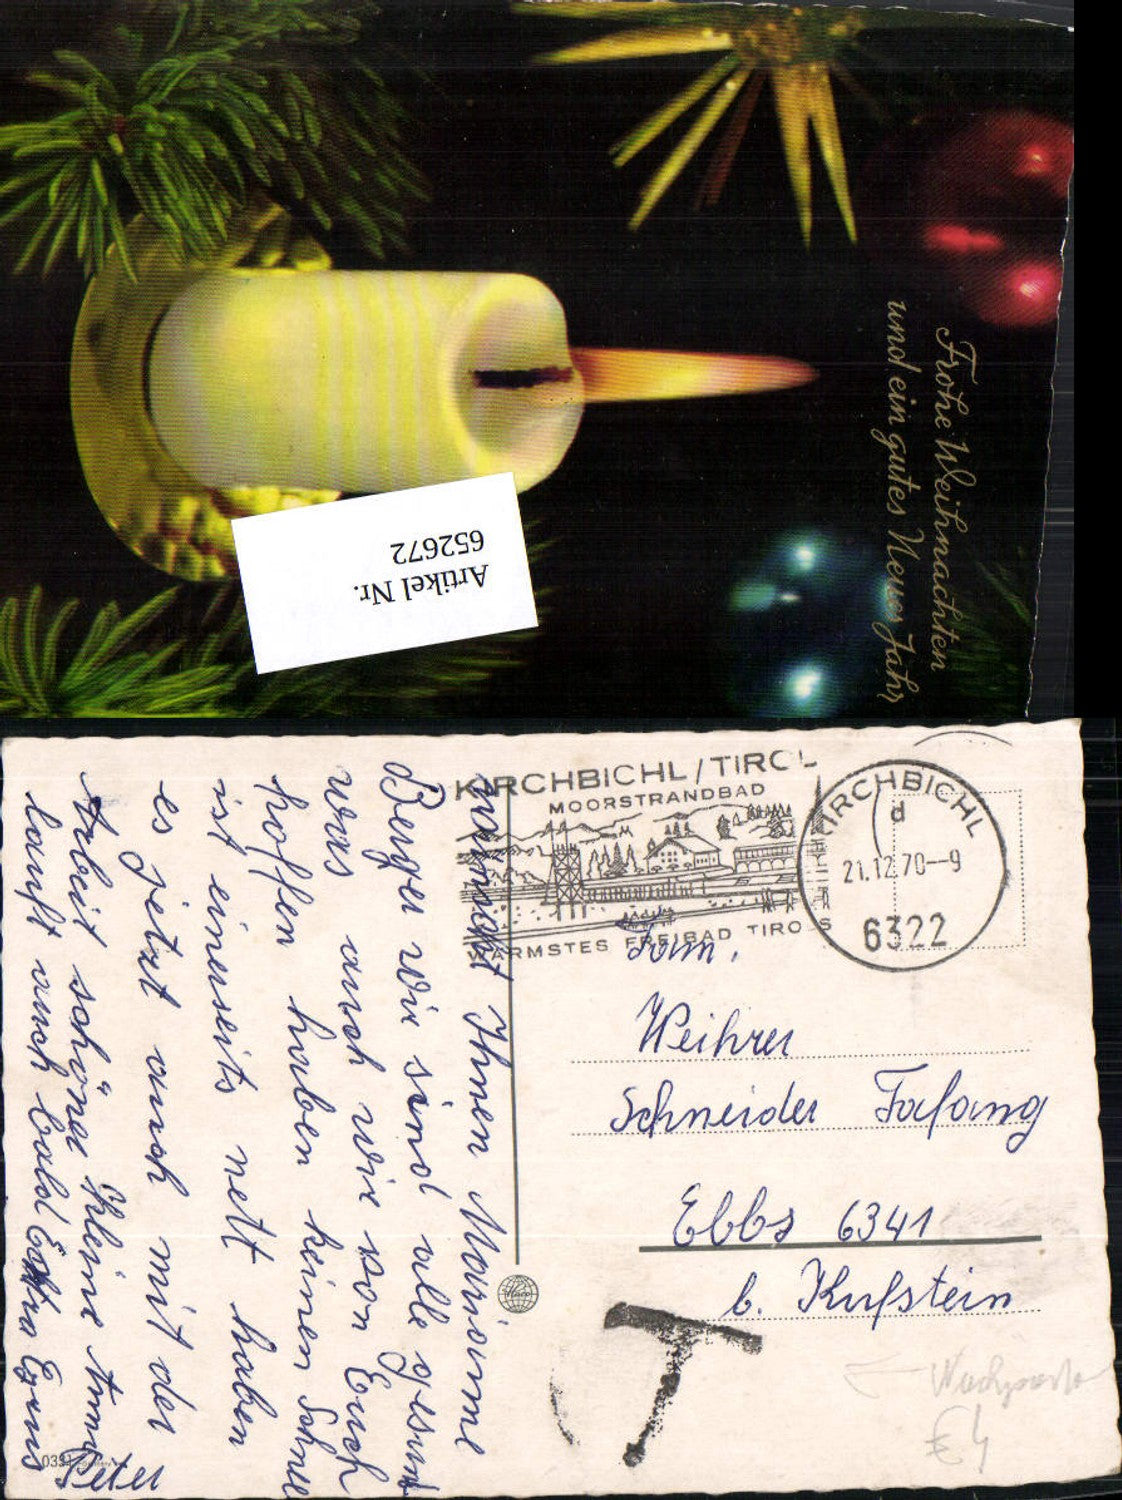 Frohe Weihnachten
und ein gutes Neues Jahr
Artikel Nr.
652672
KIRCHBICHL/TIROL
MOORSTRANDBAD
WÄRMSTES FREIBAD TIROLS
KIRCHBICHL
d
21.12.70--9
6322
Fam.
Weihrer
Schneider Fafang
Ebbs 6341
b. Kufstein
T
wünscht Ihnen Marianne
Berger wir sind alle gesund
was auch wir von Euch
hoffen haben keinen Schnee
ist einerseits nett haben
es jetzt auch mit der
Arbeit schöner kleine
lauft auch bald
Peter
033
£ 4